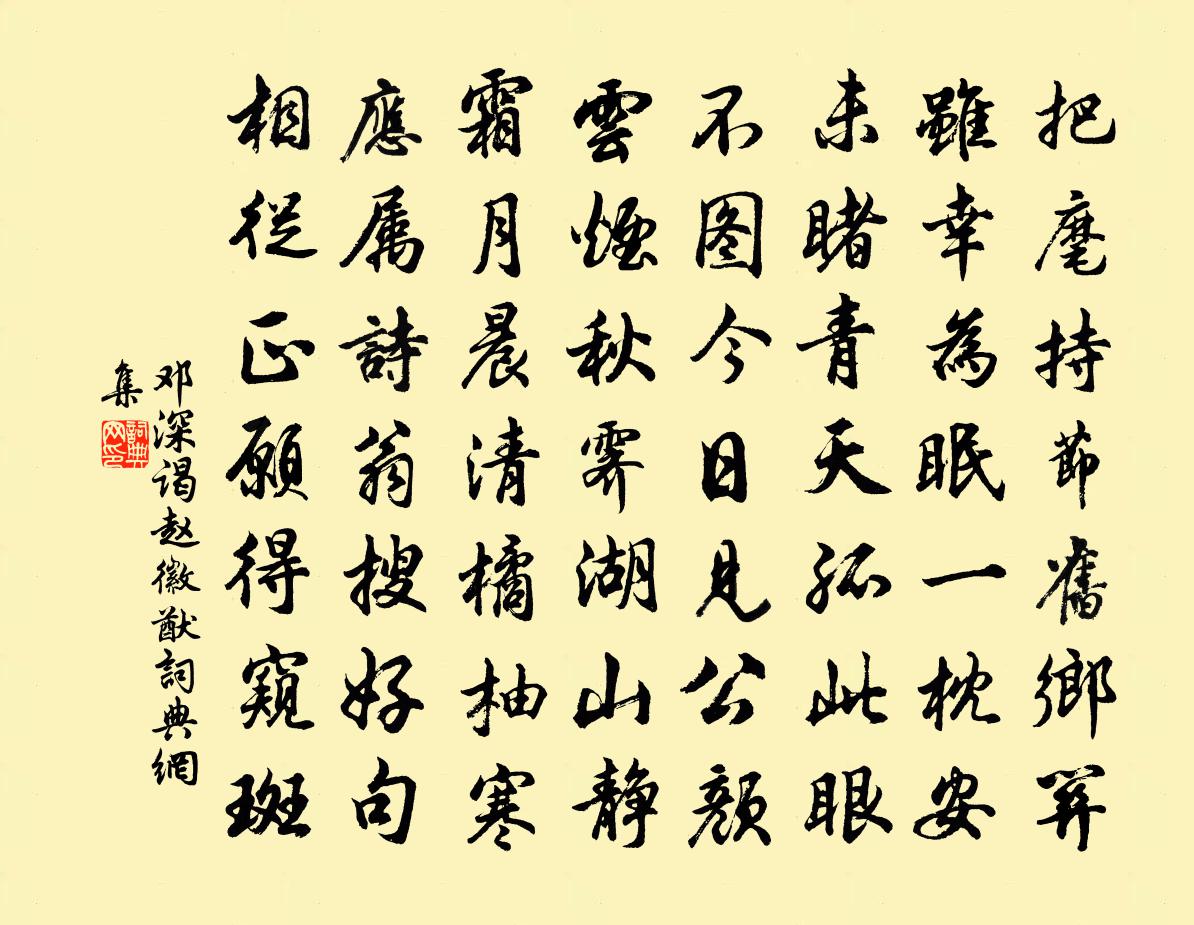 把麾持節舊鄉關
雖幸為眠一枕安
未睹青天孤此眼
不图今日見公顏
雲煙秋霽湖山静
霜月晨清橘柚寒
應属詩翁搜好句
相從正願得窺斑
邓深谒赵徽猷詞典網
集
詞典网印